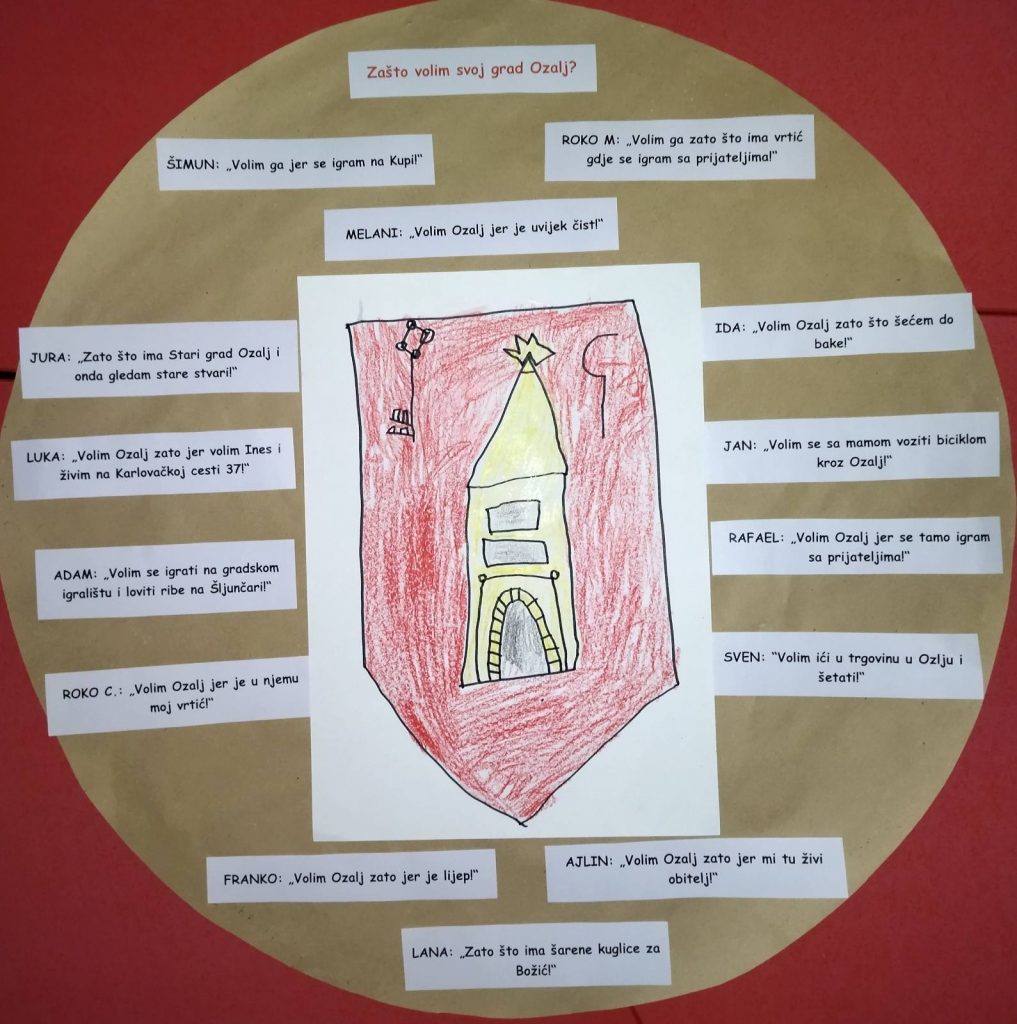 Zašto volim svoj grad Ozalj?
ŠIMUN: „Volim ga jer se igram na Kupi!“
ROKO M: „Volim ga zato što ima vrtić
gdje se igram sa prijateljima!“
MELANI: „Volim Ozalj jer je uvijek čist!“
JURA: „Zato što ima Stari grad Ozalj i
onda gledam stare stvari!“
IDA: „Volim Ozalj zato što šećem do
bake!“
LUKA: „Volim Ozalj zato jer volim Ines i
živim na Karlovačkoj cesti 37!“
JAN: „Volim se sa mamom voziti biciklom
kroz Ozalj!“
ADAM: „Volim se igrati na gradskom
igralištu i loviti ribe na Šljunčari!“
RAFAEL: „Volim Ozalj jer se tamo igram
sa prijateljima!“
ROKO C.: „Volim Ozalj jer je u njemu
moj vrtić!“
SVEN: “Volim ići u trgovinu u Ozlju i
šetati!“
FRANKO: „Volim Ozalj zato jer je lijep!“
AJLIN: „Volim Ozalj zato jer mi tu živi
obitelj!“
LANA: „Zato što ima šarene kuglice za
Božić!“